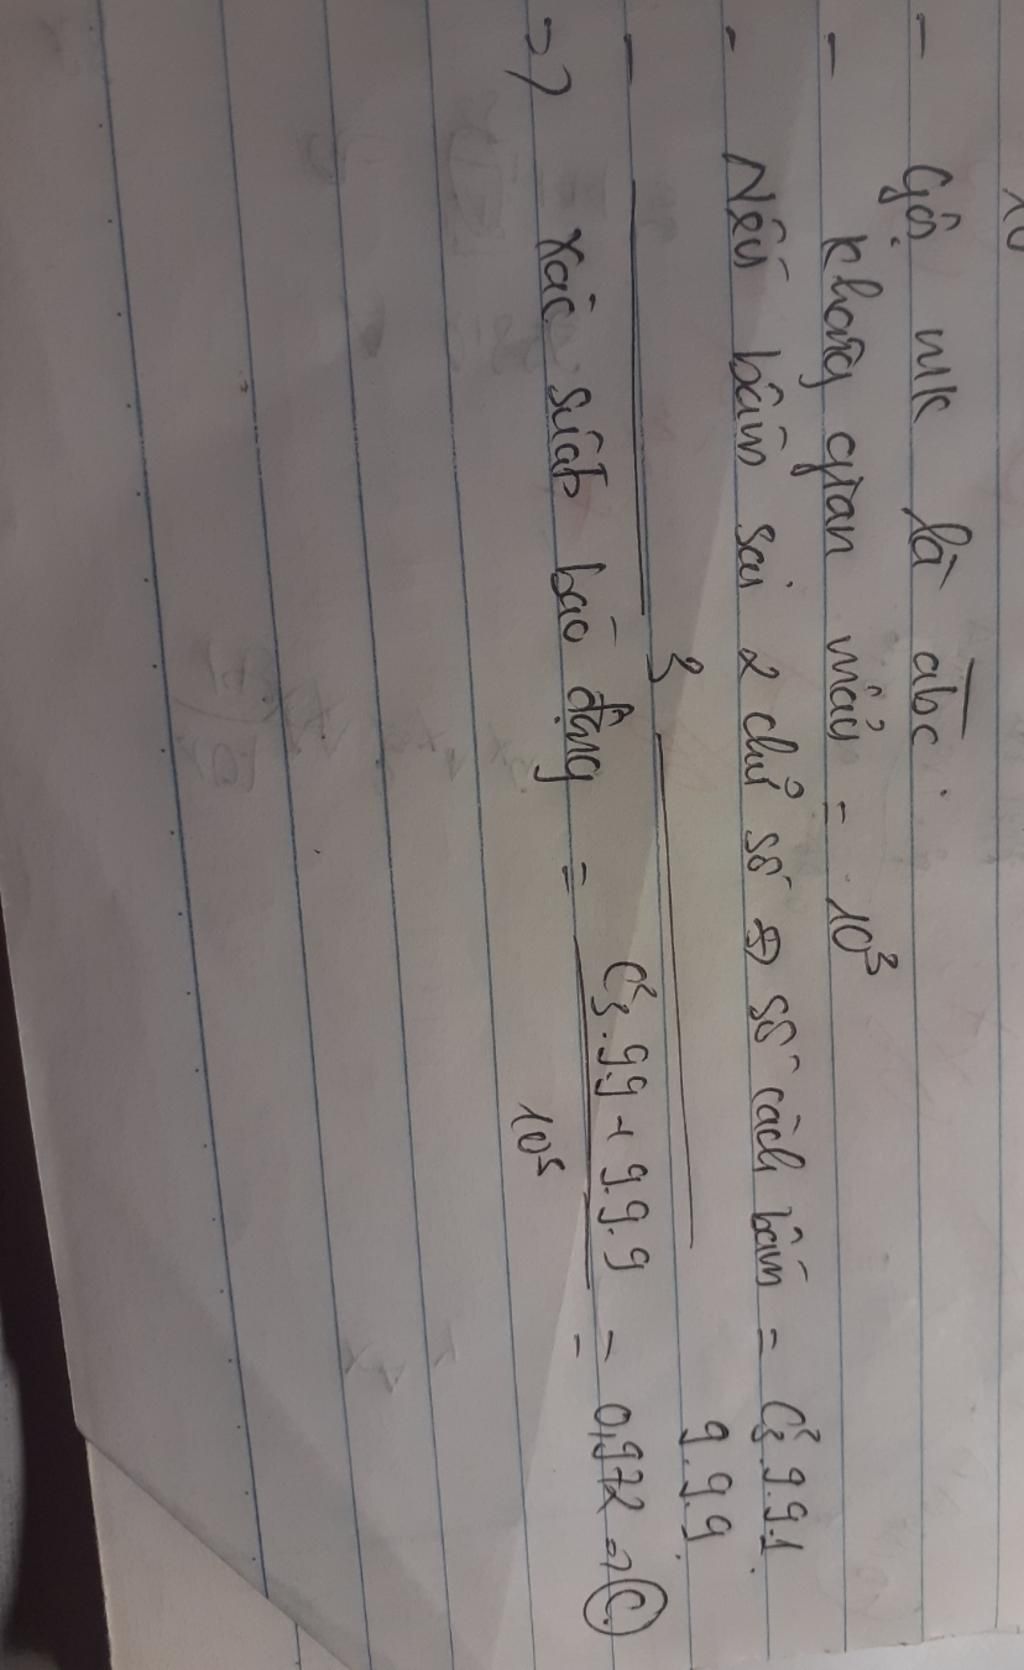 - Gọi mk là abc.
- Không gian mẫu = 10³
- Nếu bấm sai 2 chữ số => số cách bấm = C²₃.9.9.1
- ——— 3 ——— 9.9.9.
=> xác suất báo động = (C²₃.9.9 + 9.9.9) / 10³ = 0,972 => C.